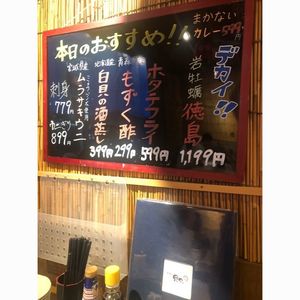 本日のおすすめ!!
まかない
カレー599円
デカイ!!
岩牡蠣 徳島
1,199円
ホタテフライ
599円
もずく酢
299円
白貝の酒蒸し
399円
宮城県産
ムラサキウニ
刺身
779円
899円